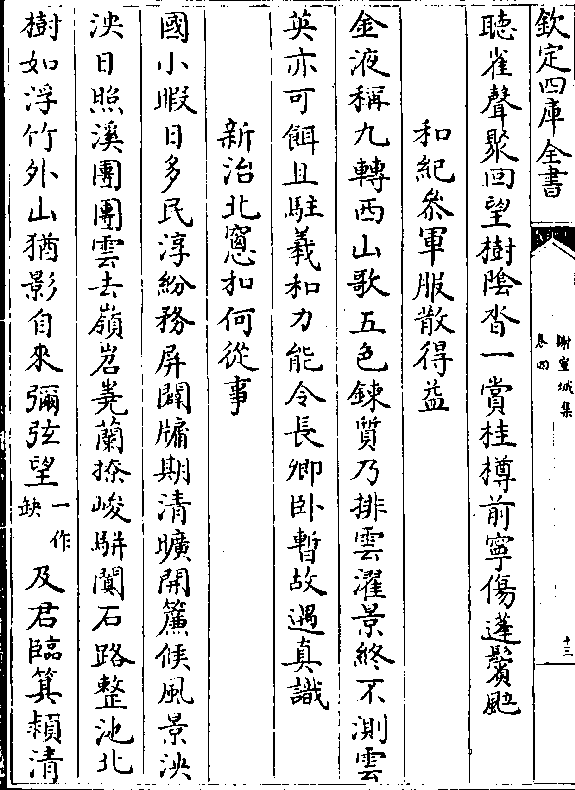 欽定四庫全書
謝宣城集
卷四
十三
聽雀聲聚回望樹陰沓一賞桂樽前寧傷蓬鬢颯
和紀參軍服散得益
金液稱九轉西山歌五色鍊質乃排雲濯景終不測雲
英亦可餌且駐羲和力能令長卿卧暫故遇真識
新治北窻和何從事
國小暇日多民淳紛務屏闢牖期清曠開簾候風景泱
泱日照溪團團雲去嶺岧嶤蘭橑峻駢闐石路整池北
樹如浮竹外山猶影自來彌弦望一作缺及君臨箕潁清